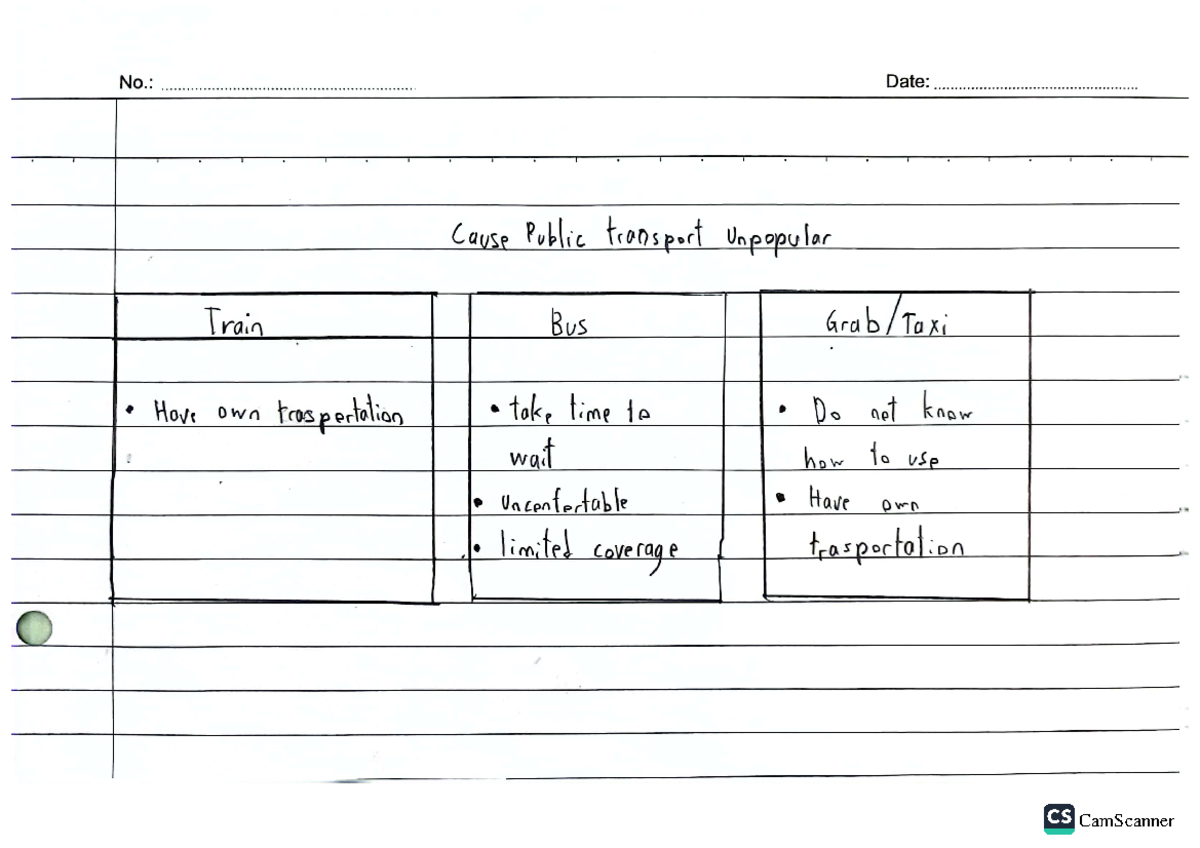 No.:
Date:
Cause Public transport Unpopular
Train
• Have own traspertation
Bus
• take time to
wait
• Uncenfertable
• limited coverage
Grab/Taxi
• Do not know
how to use
• Have own
trasportation
CS CamScanner